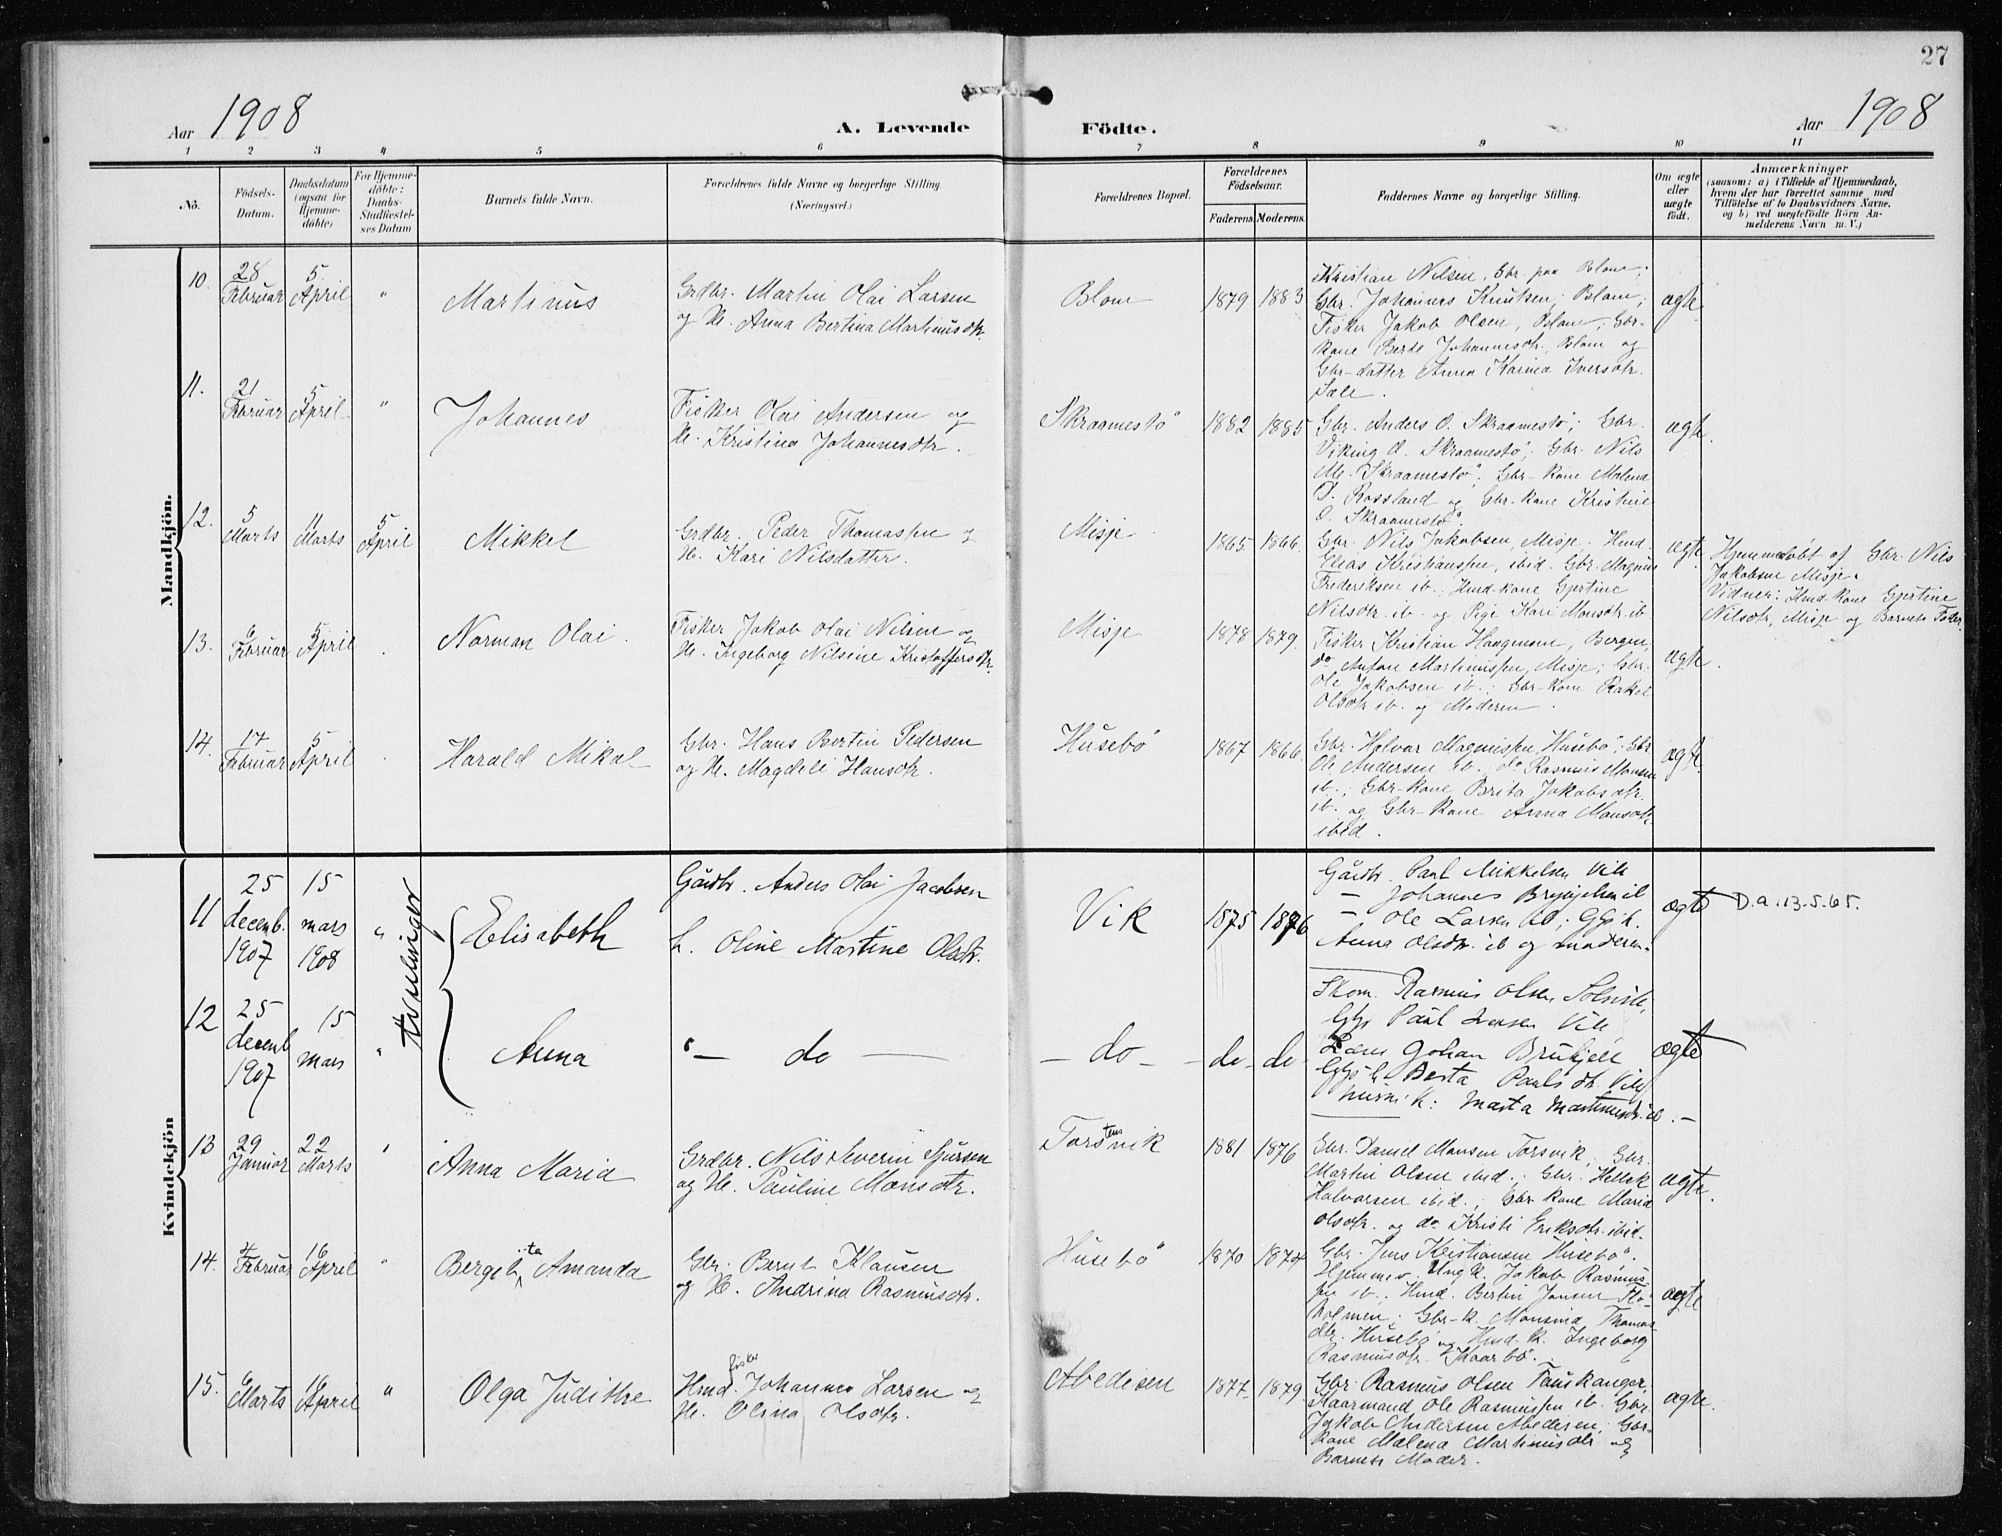 27
Aar 1908
A. Levende Födte.
Aar 1908
1 2 3 4 5 6 7 8 9 10 11
No.
Födsels-Datum.
Daabsdatum (ogsaa for Hjemme-döbte)
For Hjemme-döbte: Daabs-Stadfæstel-ses Datum
Barnets fulde Navn.
Forældrenes fulde Navne og borgerlige Stilling. (Næringsvei.)
Forældrenes Bopæl.
Forældrenes Födselsaar.
Faderens. Moderens.
Faddernes Navne og borgerlige Stilling.
Om ægte eller uægte födt.
Anmærkninger
(saasom: a) i Tilfælde af Hjemmedaab,
hvem der har forrettet samme med
Tilföielse af to Daabsvidners Navne,
og b) ved uægtefödte Börn An-
melderens Navn m. V.)
Mandkjön.
10. 28 Februar 5 April " Martinus
Grdbr. Martin Olai Larsen
og H. Anna Bertina Martinusdtr.
Blom 1879 1883
Kristian Nilsen, Gbr. paa Blom;
Gbr. Johannes Knutsen, Blom;
Fisker Jakob Olsen, Blom; Gbr-
kone Berte Johannesdtr. Blom og
Gbr-datter Anna Karina Iversdtr.
Sæle.
ægte
11. 21 Februar 5 April " Johannes
Fisker Olai Andersen og
H. Kristina Johannesdtr.
Skraamestö 1882 1885
Gbr. Anders O. Skraamestö; Gbr.
Viking O. Skraamestö; Gbr. Nils
M. Skraamestö; Gbr-kone Malena
Rossland og Gbr-kone Kristine
O. Skraamestö.
ægte.
12. 5 Marts 11 Marts 5 April Mikkel
Grdbr. Peder Thomassen og
H. Kari Nilsdatter.
Misje 1865 1866.
Gbr. Nils Jakobsen, Misje. Hmd.
Elias Kristianssen, ibid. Gbr. Magnus
Frederiksen ib.; Hmd-kone Gjertine
Nilsdtr. ib. og Pige Kari Monsdtr. ib.
ægte.
Hjemmedöbt af Gbr. Nils
Jakobsen Misje.
Vidner: Hmd-kone Gjertine
Nilsdtr, Misje og Barnets Fader.
13. 6 Februar 5 April Norman Olai.
Fisker Jakob Olai Nilsen og
H. Ingeborg Nilsine Kristoffersdtr.
Misje 1878 1879.
Fisker Kristian Haagensen, Bergen,
do Anton Martinussen, Misje; Gbr.
Ole Jakobsen ib.; Gbr-kone Rakel
Olsdtr. ib. og Moderen.
ægte.
14. 17 Februar 5 April Harald Mikal
Gbr. Hans Bertin Pedersen
og H. Magdeli Hansdtr.
Husebö 1867 1866.
Gbr. Halvar Magnussen, Husebö; Gbr.
Ole Andersen ib.; do Rasmus Monsen
ib.; Gbr-kone Brita Jakobsdtr.
ib. og Gbr-kone Anna Monsdtr.
ibid.
ægte.
Kvindekjön
11 25 decemb. 1907 15 mars 1908 " Tvillinger Elisabeth
Gårdbr. Anders Olai Jacobsen
h. Oline Martine Olsdtr.
Vik 1875 1876
Gårdbr. Paul Mikkelsen Vik
— Johannes
— Ole Larsen
Anna Olsdtr. ib og moderen.
ægte D.a. 13.5.65.
12 25 decemb 1907 15 mars " Anna
"— do —
— do — do do
Skom. Rasmus Olsen Solsvik,
Paul Larsen Vik
Johan
Berta Paulsdtr. Vik
Marta Martinusdtr. ib.
ægte
13 29 Januar 22 Marts " Anna Maria
Grdbr. Nils Severin Sjursen
og H. Pauline Monsdtr.
Torstensvik 1881 1876
Gbr. Daniel Monsen Torsvik, Gbr.
Martin Olsen ibid.; Gbr. Hellek
Halvorsen ibid.; Gbr-kone Maria
Olsdtr. og do Kristi Eriksdtr. ibid.
ægte.
14. 4 Februar 16 April " Bergitta Amanda
Gbr. Bernt Klausen
og H. Andrina Rasmusdtr.
Husebö 1870 1874
Gbr. Jens Kristiansen Husebö.
Hjemmev. Ungk. Jakob Rasmus-
sen ib.; Hmd. Bertin Jansen Flö-
holmen; Gbr-k. Monsina Thomas-
dtr. Husebö og Hmd-k. Ingeborg
Rasmusdtr. Kaarbö.
ægte
15. 6 Marts 16 April " Olga Judithe
Hmd. fisker Johannes Larsen og
H. Olina Olsdtr.
Abedisen 1877 1879
Gbr. Rasmus Olsen Fauskanger,
Kaarmand Ole Rasmussen ib. Gbr.
Jakob Andersen Abedisen; Gbr-
kone Malena Martinusdtr og
Barnets Moder.
ægte.